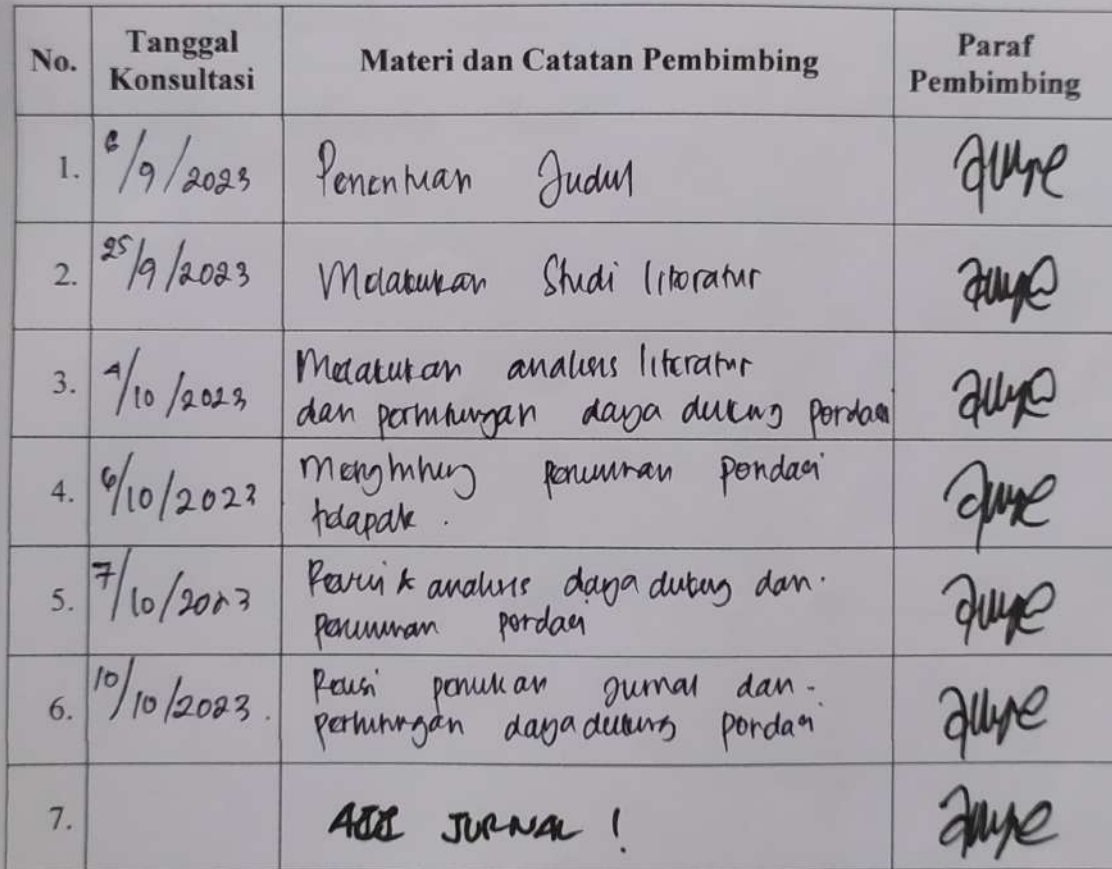 No.
Tanggal
Konsultasi
Materi dan Catatan Pembimbing
Paraf
Pembimbing
1.
6/9/2023
Penentuan Judul
2.
25/9/2023
Melakukan Studi literatur
3.
4/10/2023
Melakukan analisis literatur
dan perhitungan daya dukung pondasi
4.
6/10/2023
Menghitung penurunan pondasi
telapak.
5.
7/10/2023
analisis daya dukung dan
penurunan pondasi
6.
10/10/2023.
Revisi penulisan jurnal dan
perhitungan daya dukung pondasi
7.
JURNAL !